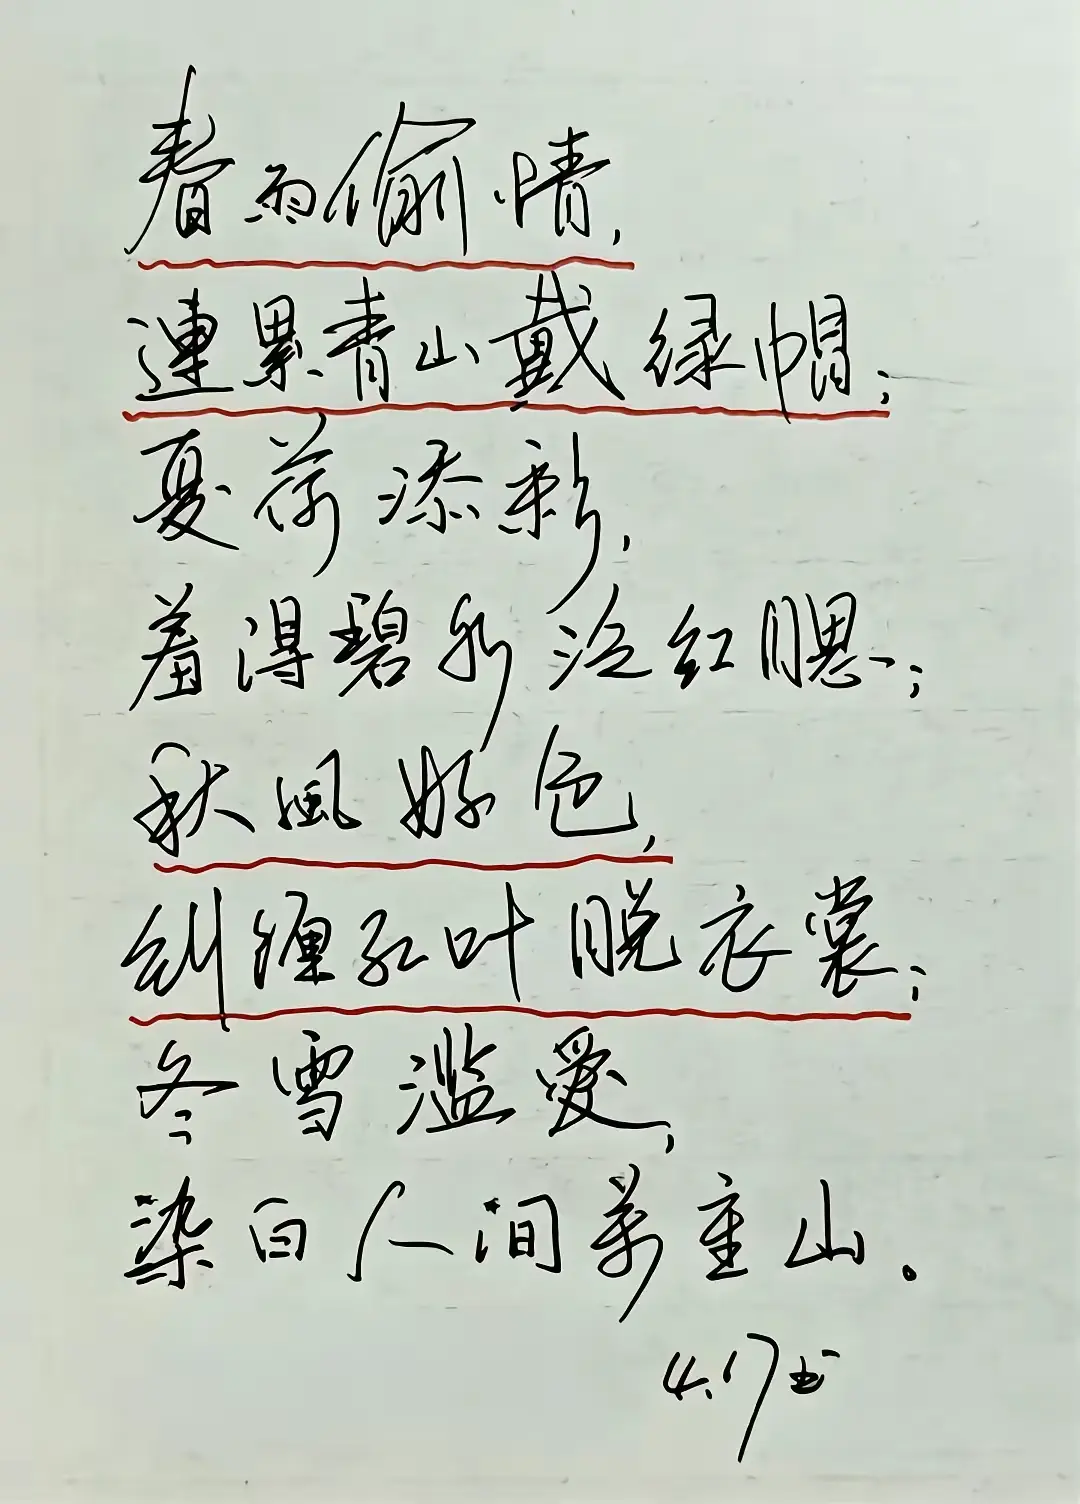 春雨偷情，
連累青山戴绿帽；
夏荷添彩，
羞得碧水泛红腮；
秋風好色，
纠缠红叶脱衣裳；
冬雪滥愛，
染白人间萬重山。
4.17书